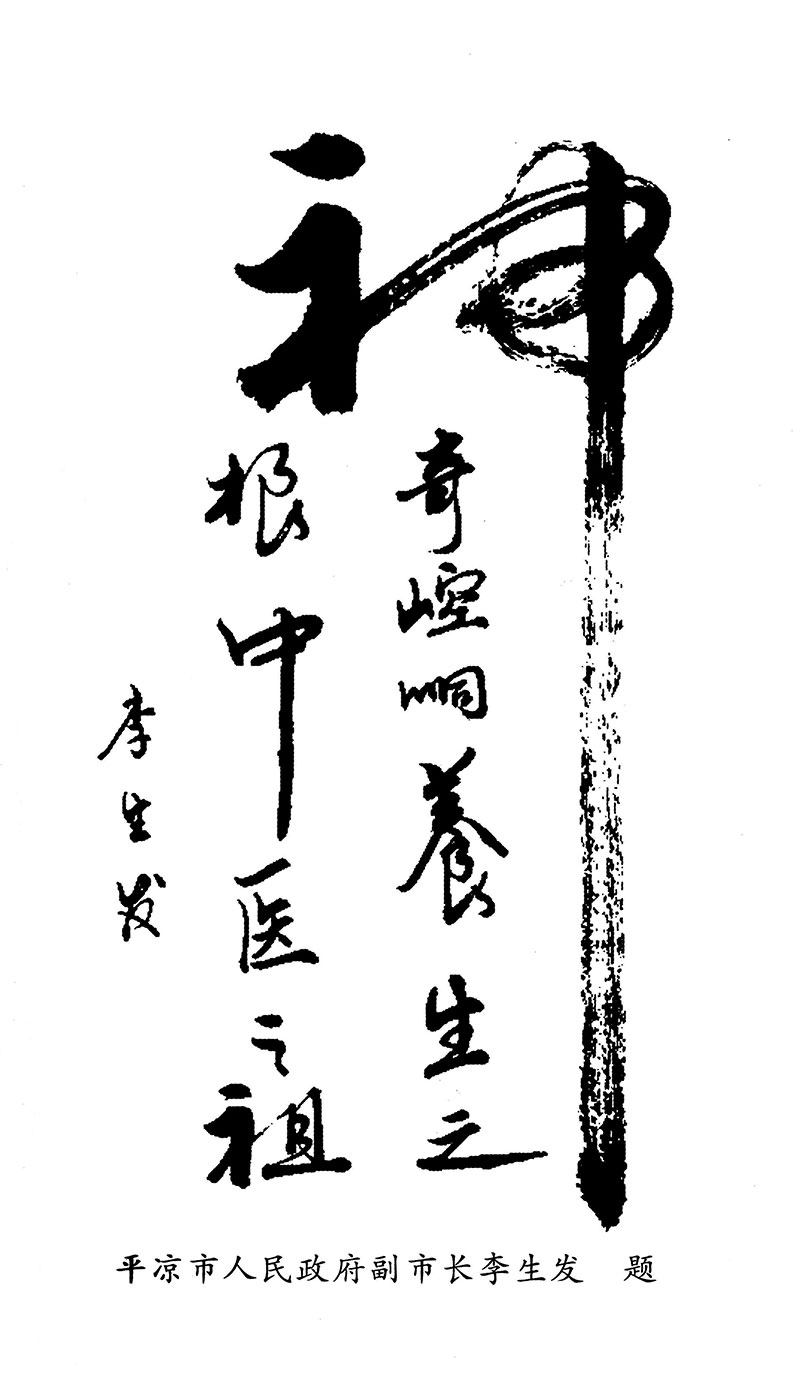 神
奇崆峒養生之
根中医之祖
李生发
平凉市人民政府副市长李生发 题